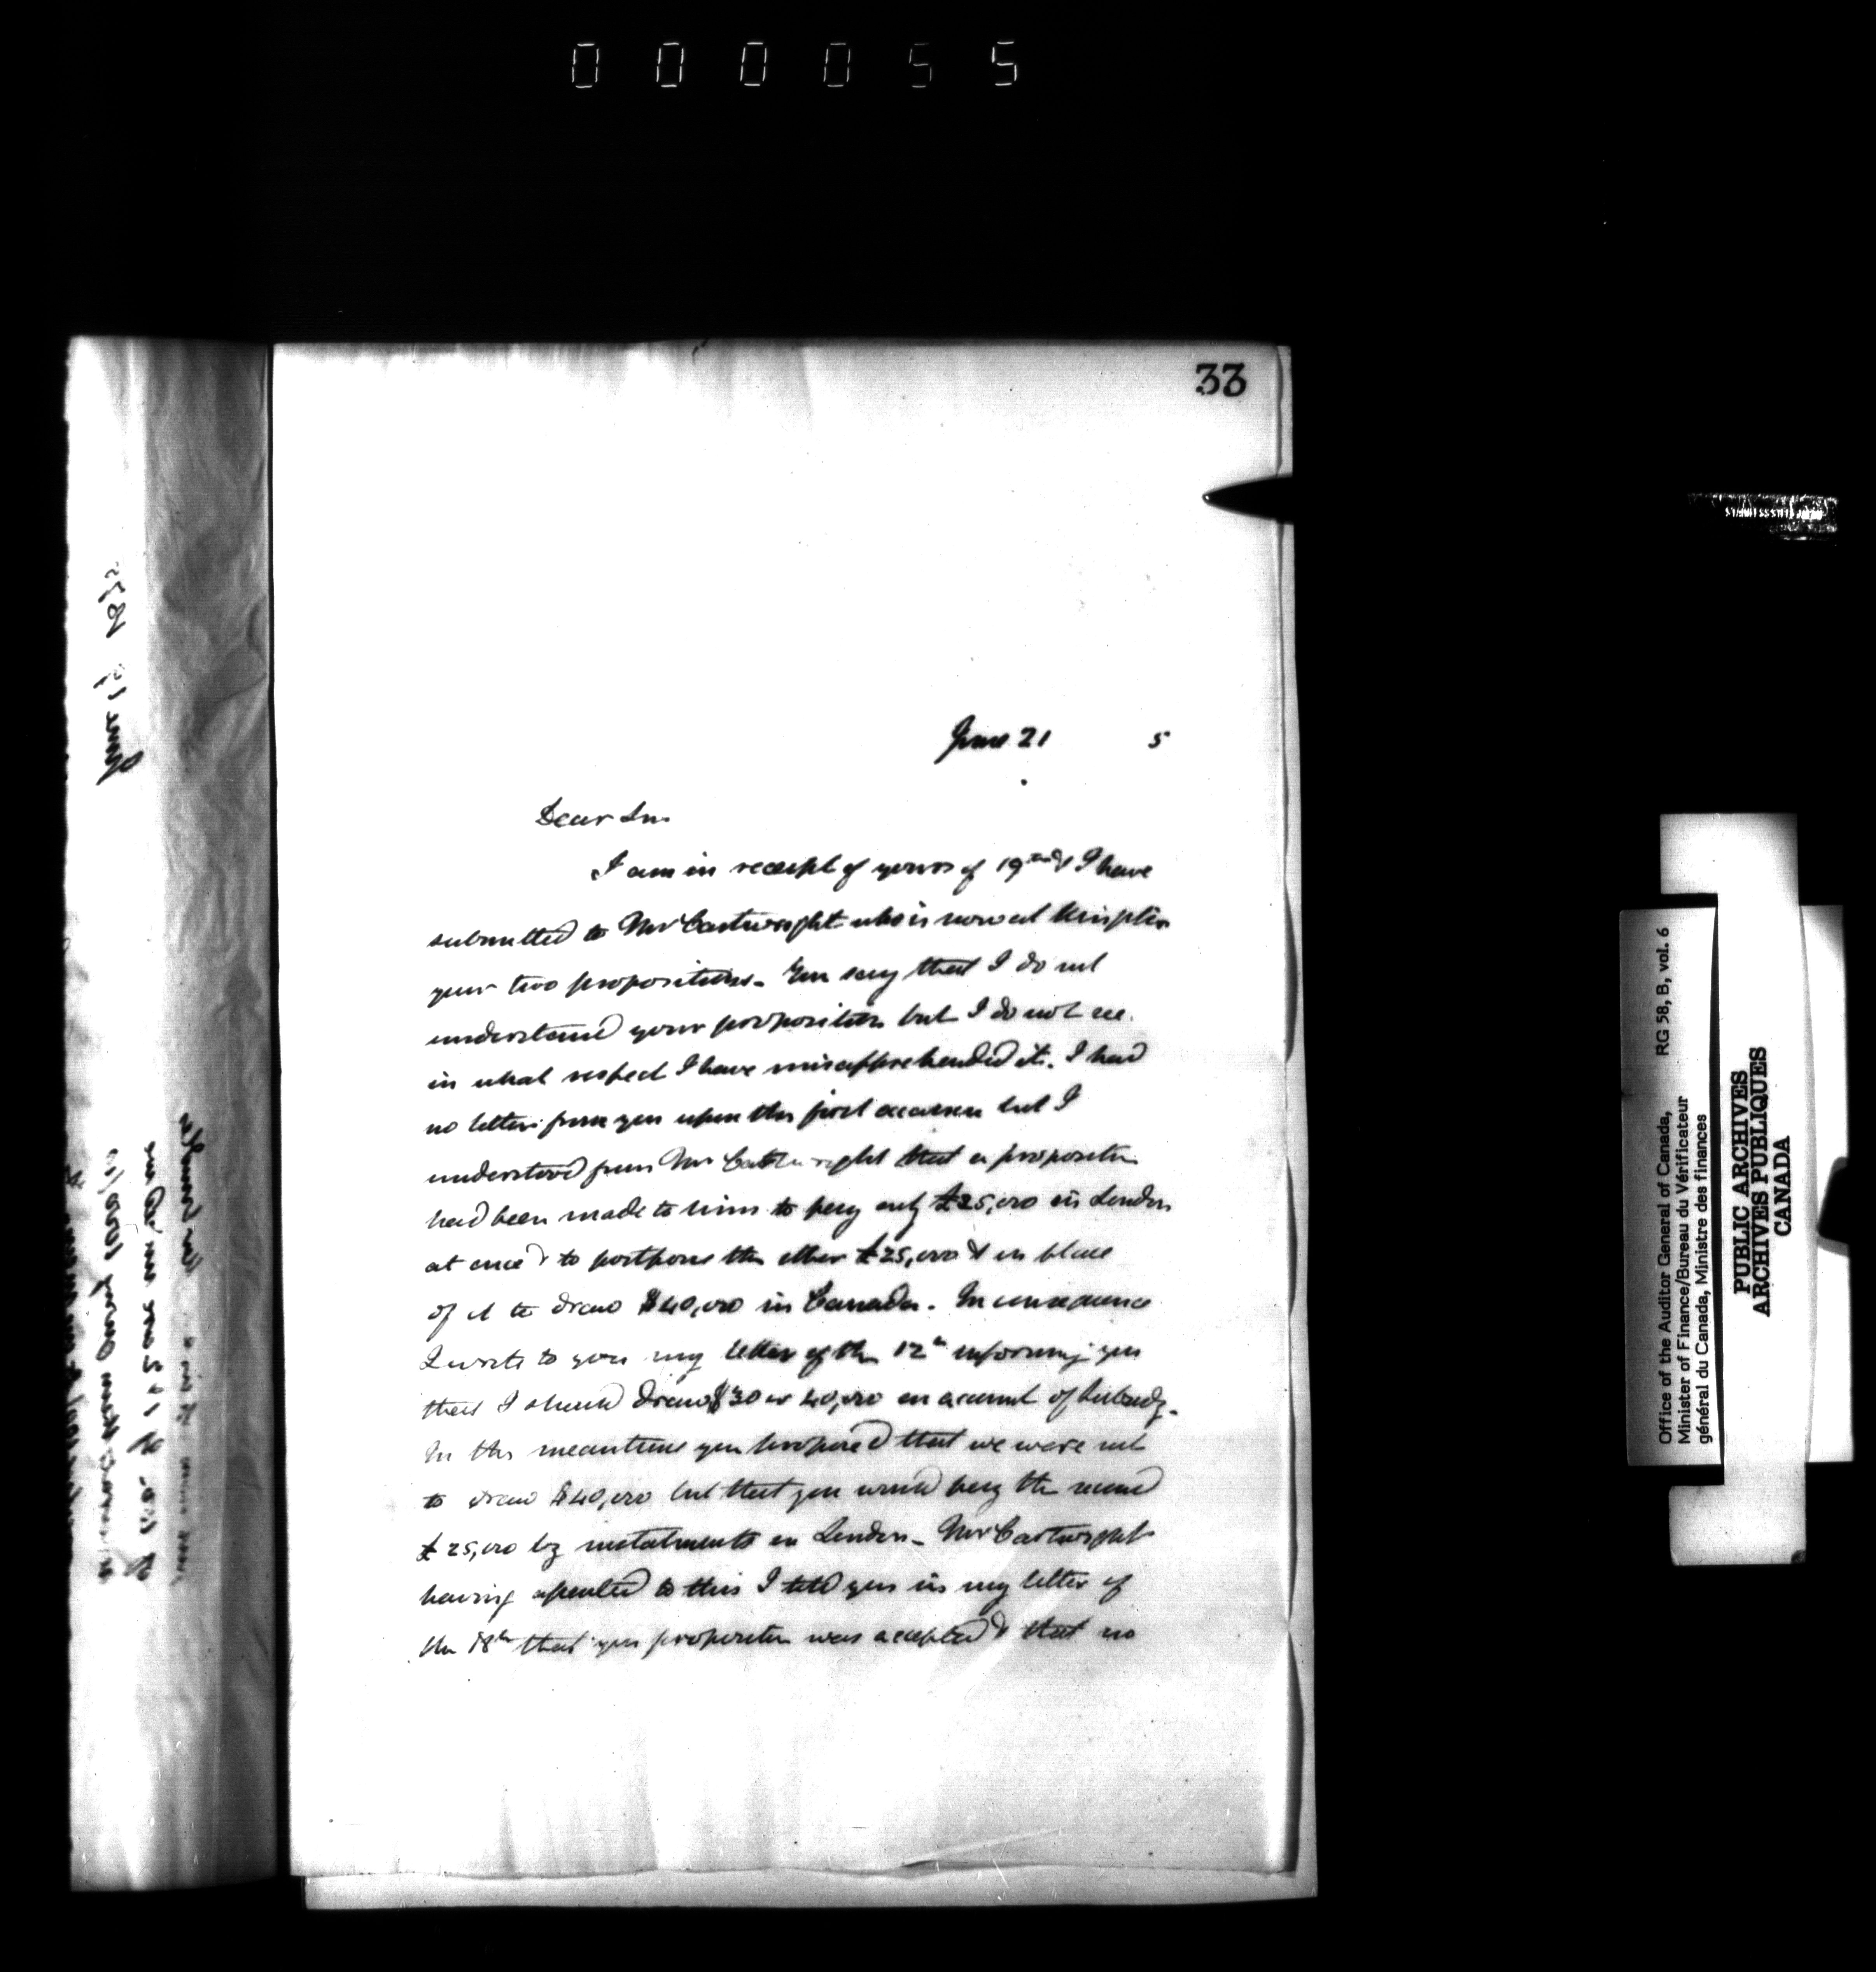 000055
33
June 21 5
Dear Sir
I am in receipt of yours of 19th & I have
submitted to Mr Cartwright who is now at Kingston
your two propositions. You say that I do not
understand your proposition but I do not see
in what respect I have misapprehended it. I had
no letter from you upon the first occasion but I
understood from Mr Cartwright that a proposition
had been made to him to pay only £25,000 in London
at once & to postpone the other £25,000 & in place
of it to draw $40,000 in Canada. In consequence
I wrote to you my letter of the 12th informing you
that I should draw $30 or 40,000 on account of Subsidy.
In the meantime you proposed that we were not
to draw $40,000 but that you would pay the second
£25,000 by instalments in London. Mr Cartwright
having assented to this I told you in my letter of
the 18th that your proposition was accepted & that no
June 15 1875
Office of the Auditor General of Canada, RG 58, B, vol. 6
Minister of Finance/Bureau du Vérificateur
général du Canada, Ministre des finances
PUBLIC ARCHIVES
ARCHIVES PUBLIQUES
CANADA